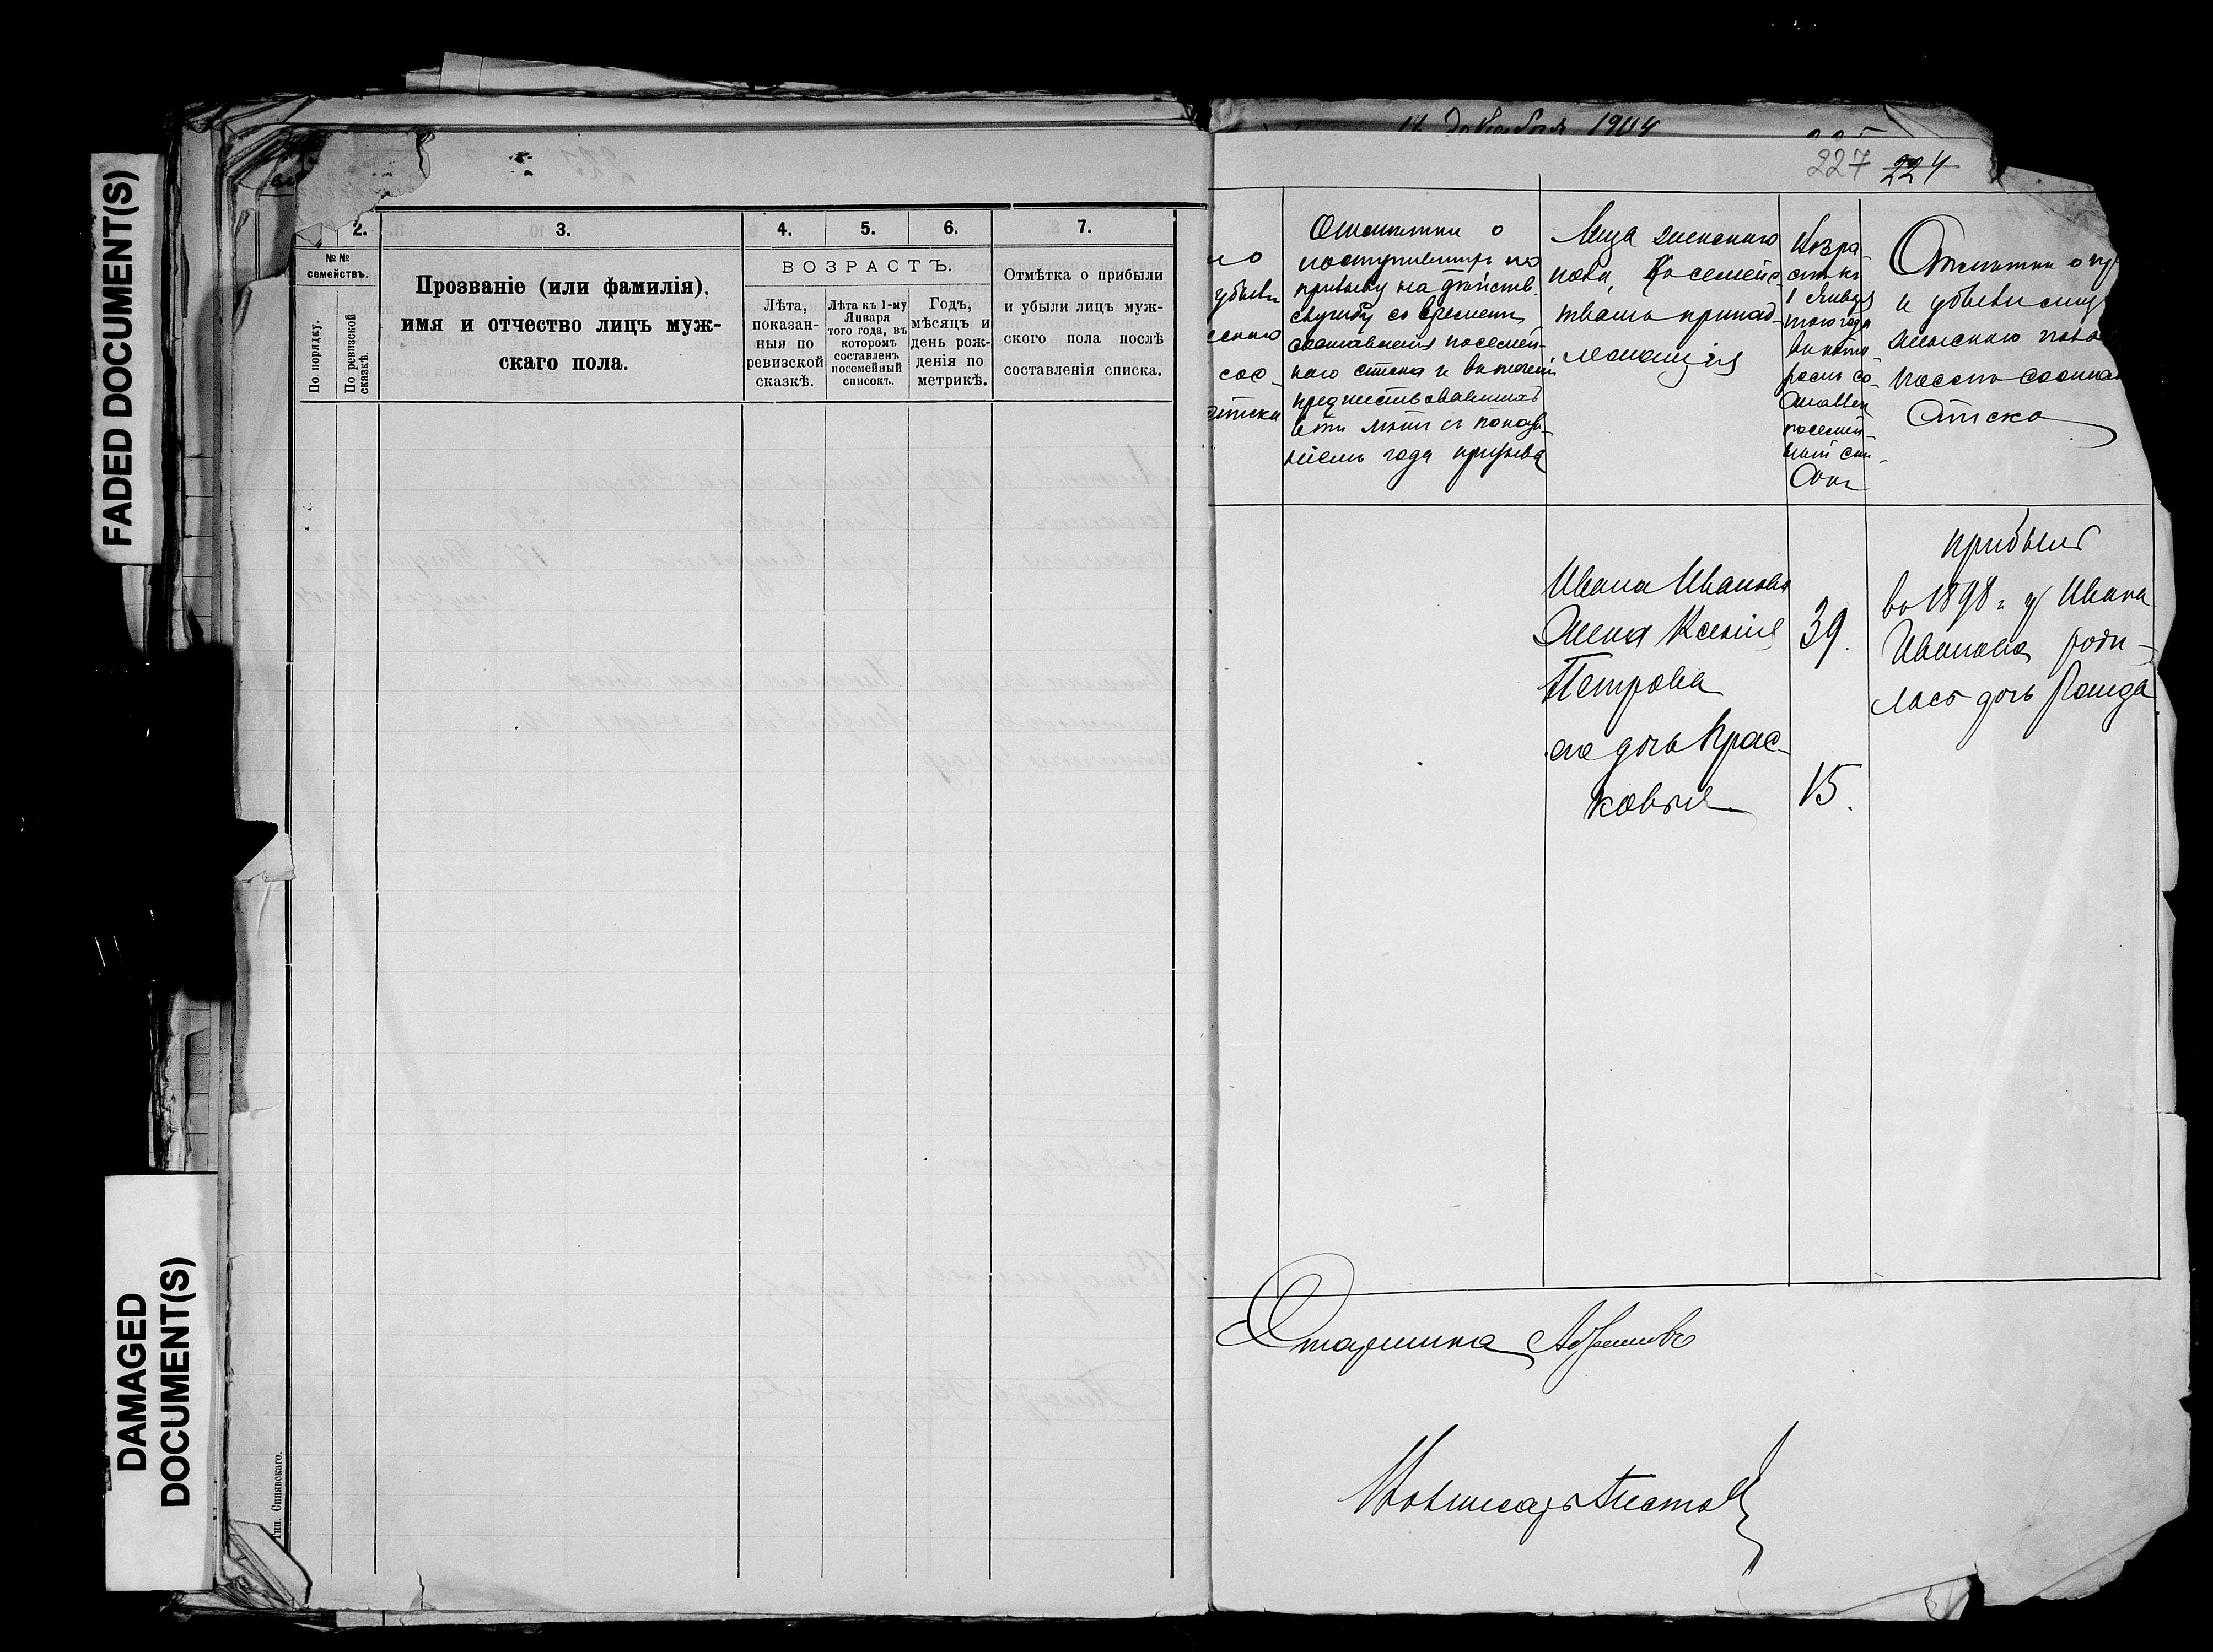 FADED DOCUMENT(S)
DAMAGED
DOCUMENT(S)
2.
3.
4.
5.
6.
7.
№ №
семействъ.
По порядку.
По ревизской
сказкѣ.
Прозваніе (или фамилія),
имя и отчество лицъ муж-
скаго пола.
ВОЗРАСТЪ.
Лѣта,
показан-
ныя по
ревизской
сказкѣ.
Лѣта къ 1-му
Января
того года, въ
которомъ
составленъ
посемейный
списокъ.
Годъ,
мѣсяцъ и
день рож-
денія по
метрикѣ.
Отмѣтка о прибыли
и убыли лицъ муж-
ского пола послѣ
составленія списка.
Тип. Синявскаго.
14 декабря 1904
227 224
но
убыли
сос-
списка
Отмѣтки о
поступившихъ по
призыву на дѣйств.
службу со времени
составленія посемей-
наго списка и въ теченіи
предшествовавшихъ
лѣтъ съ показа-
ніемъ года призыва
Лица женскаго
пола, къ семейс-
твамъ принад-
лежащія
Возра-
стъ къ
1 Января
того года
въ кото-
ромъ со-
ставлен
посемей-
ный спи-
сокъ
Отмѣтки о пр
и убыли лицъ
женскаго пола
послѣ состав
списка
Ивана Иванова
жена Ксенія
Петрова
39.
его дочь Прас-
ковья
15.
прибыль
въ 1898 г. у Ивана
Иванова роди-
лась дочь
Старшина